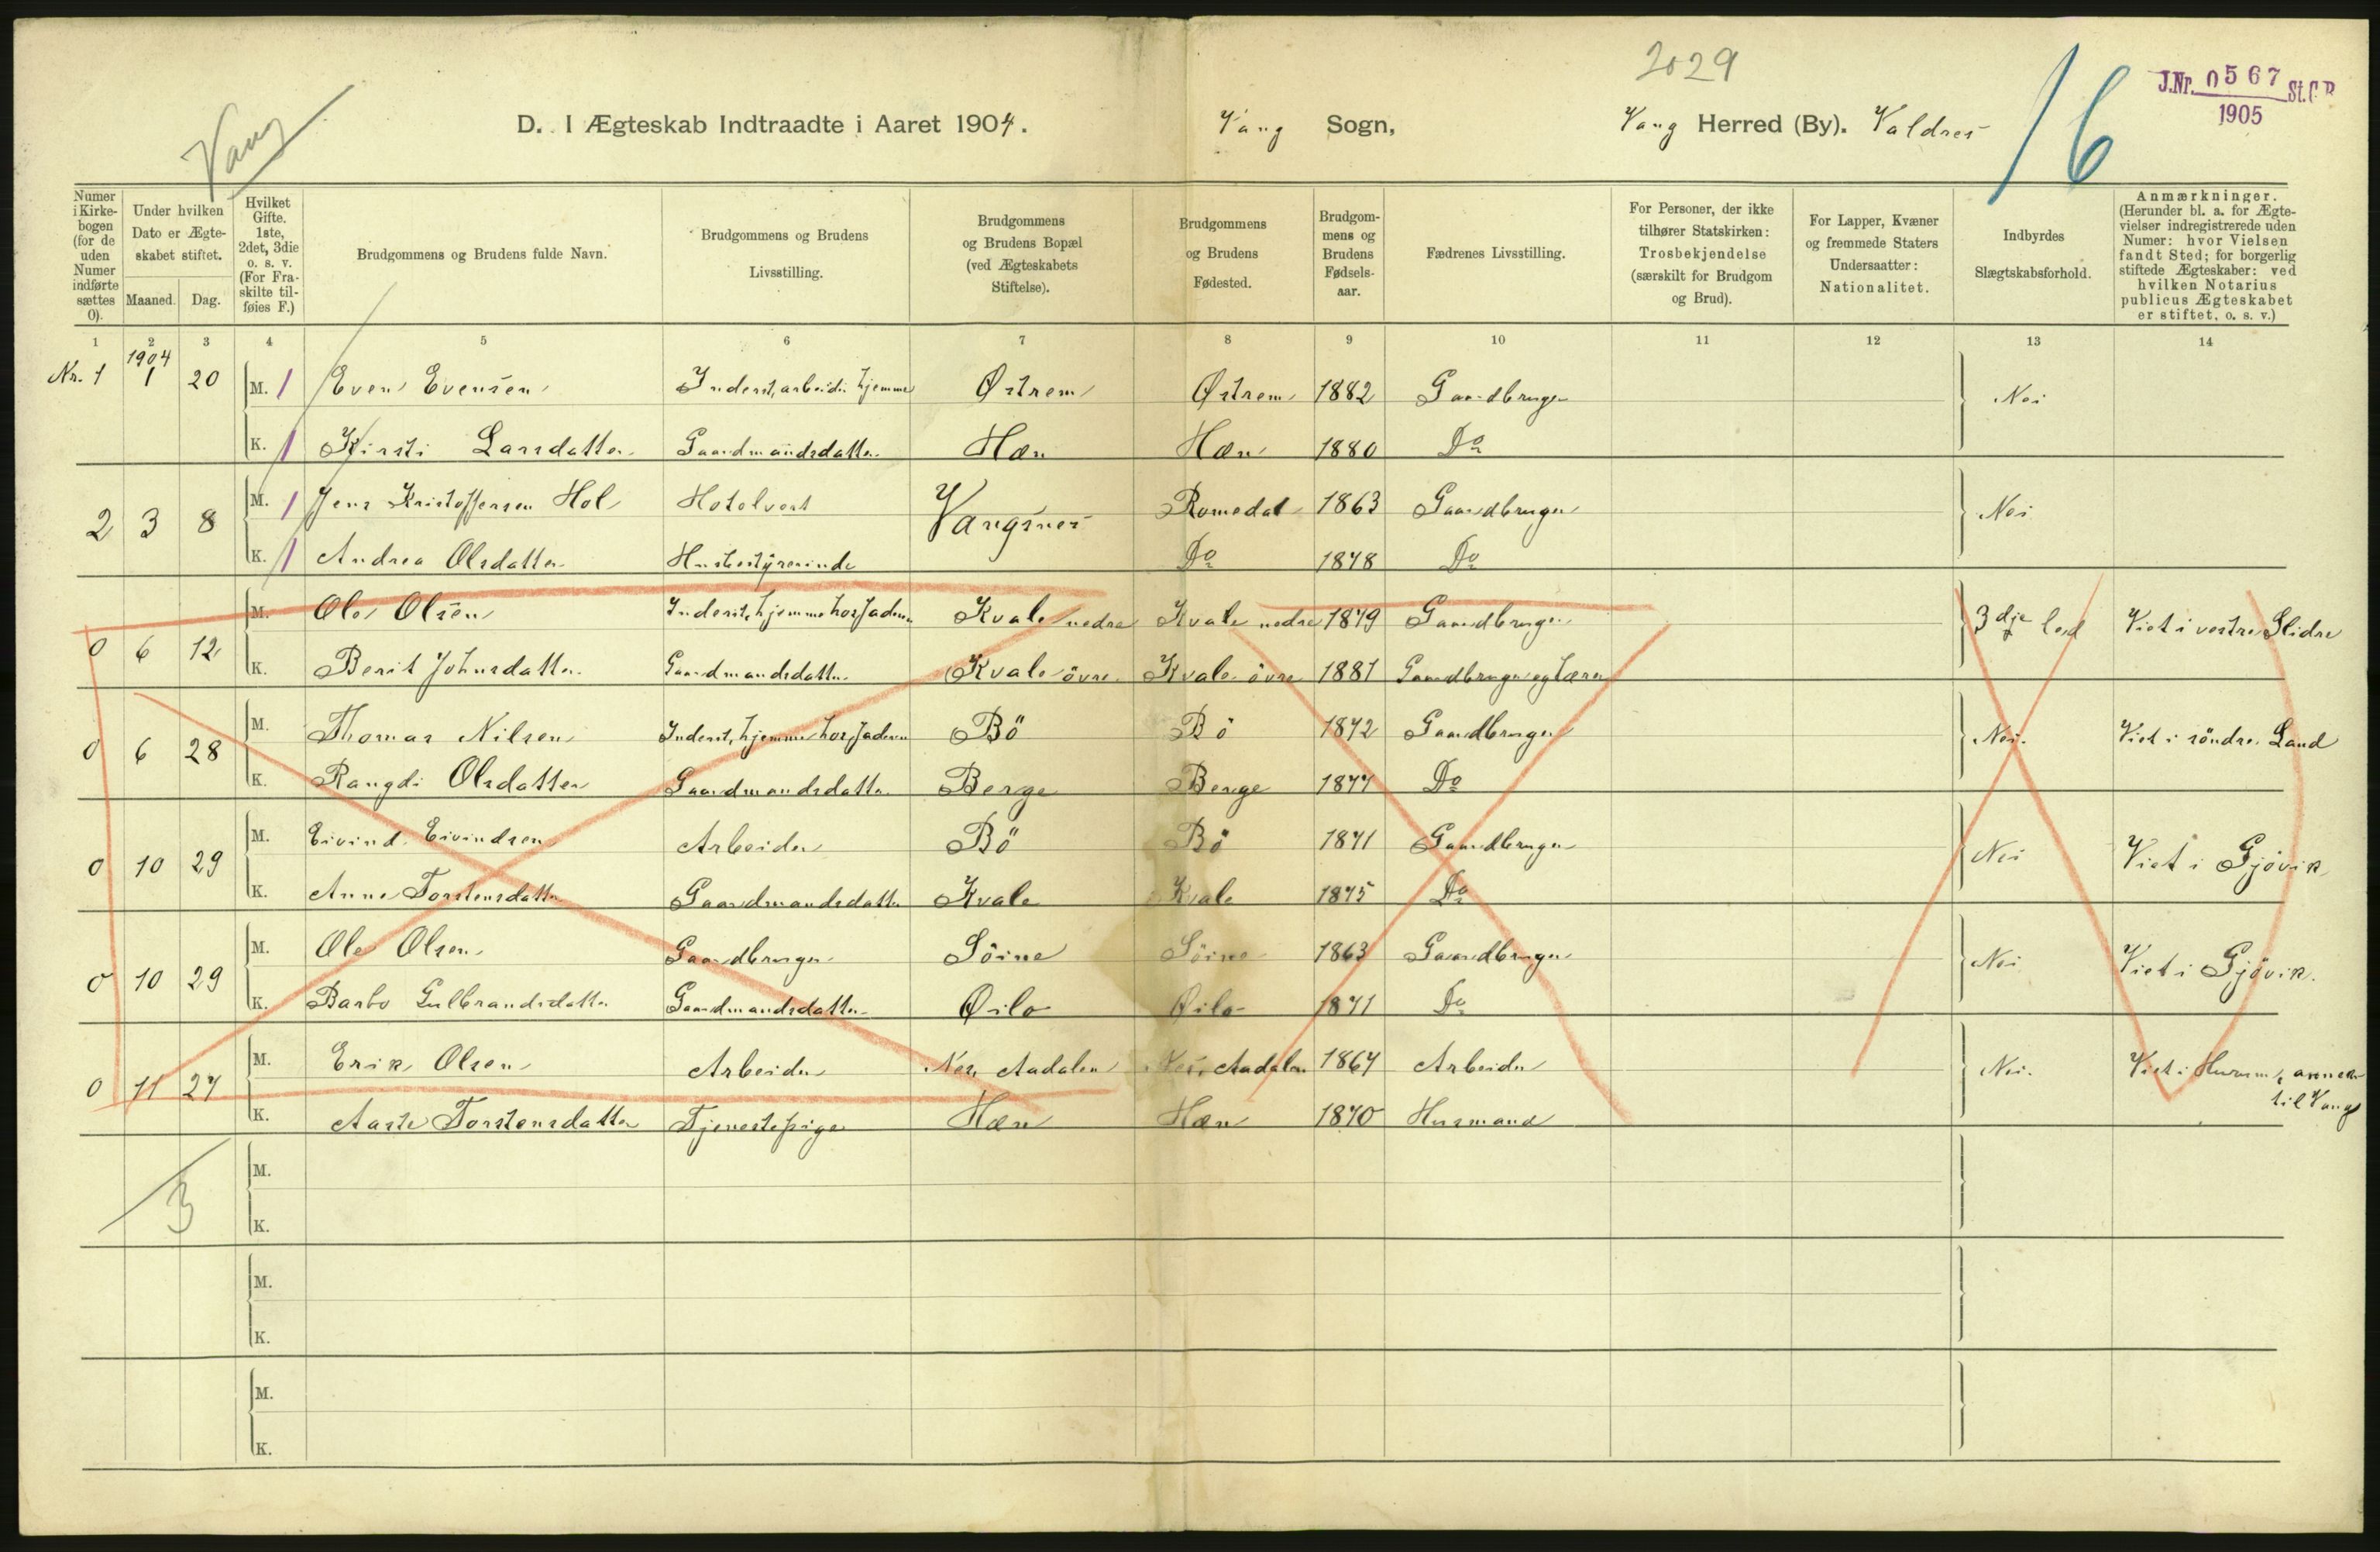 2029
J.Nr. 0567 St.C.B.
1905
16
Vang
D. I Ægteskab Indtraadte i Aaret 1904. Vang Sogn, Vang Herred (By). Valdres
Numer i Kirkebogen (for de uden Numer indførte sættes 0).
Under hvilken Dato er Ægteskabet stiftet.
Maaned. Dag.
Hvilket Gifte. 1ste, 2det, 3die o. s. v. (For Fraskilte tilføies F.)
Brudgommens og Brudens fulde Navn.
Brudgommens og Brudens Livsstilling.
Brudgommens og Brudens Bopæl (ved Ægteskabets Stiftelse).
Brudgommens og Brudens Fødested.
Brudgommens og Brudens Fødselsaar.
Fædrenes Livsstilling.
For Personer, der ikke tilhører Statskirken: Trosbekjendelse (særskilt for Brudgom og Brud).
For Lapper, Kvæner og fremmede Staters Undersaatter: Nationalitet.
Indbyrdes Slægtskabsforhold.
Anmærkninger. (Herunder bl. a. for Ægtevielser indregistrerede uden Numer: hvor Vielsen fandt Sted; for borgerlig stiftede Ægteskaber: ved hvilken Notarius publicus Ægteskabet er stiftet, o. s. v.)
1 2 3 4 5 6 7 8 9 10 11 12 13 14
1904
Nr. 1 1 20 M. 1 Even Evensen Inderst, arbeider hjemme Østrem Østrem 1882 Gaardbruger Nei
K. 1 Kirsti Larsdatter Gaardmandsdatter Hæn Hæn 1880 Do
2 3 8 M. 1 Jens Kristoffersen Hol Hotelvert Vangsnes Romedal 1863 Gaardbruger Nei
K. 1 Andrea Olsdatter Husbestyrerinde Do 1878 Do
0 6 12 M. Ole Olsen Inderst, hjemme hos faderen Kvale nedre Kvale nedre 1879 Gaardbruger 3dje led Viet i vestre Slidre
K. Berit Johnsdatter Gaardmandsdatter Kvale övre Kvale övre 1881 Gaardbruger og lærer
0 6 28 M. Thomas Nilsen Inderst, hjemme hos faderen Bö Bö 1872 Gaardbruger Nei. Viet i söndre Land
K. Rangdi Olsdatter Gaardmandsdatter Berge Berge 1877 Do
0 10 29 M. Eivind Eivindsen Arbeider Bö Bö 1871 Gaardbruger Nei Viet i Gjövik
K. Anne Torstensdatter Gaardmandsdatter Kvale Kvale 1875 Do
0 10 29 M. Ole Olsen Gaardbruger Söine Söine 1863 Gaardbruger Nei Viet i Gjövik.
K. Barbo Gulbrandsdatter Gaardmandsdatter Øilo Øilo 1871 Do
0 11 27 M. Erik Olsen Arbeider Nes, Aadalen Nes, Aadalen 1867 Arbeider Nei. Viet i Hurum, annex
til Vang
K. Aaste Torstensdatter Tjenestepige Hæn Hæn 1870 Husmand
M.
3
K.
M.
K.
M.
K.